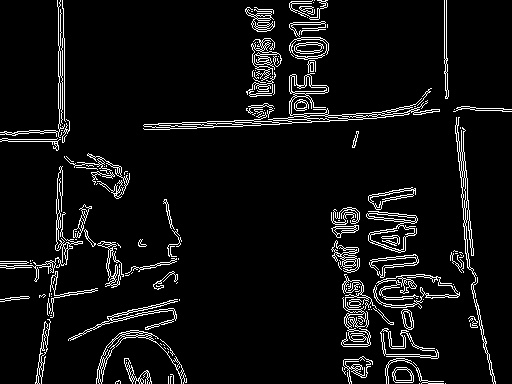 4 bags of
PF-014
4 bags of 15
PF-014/1